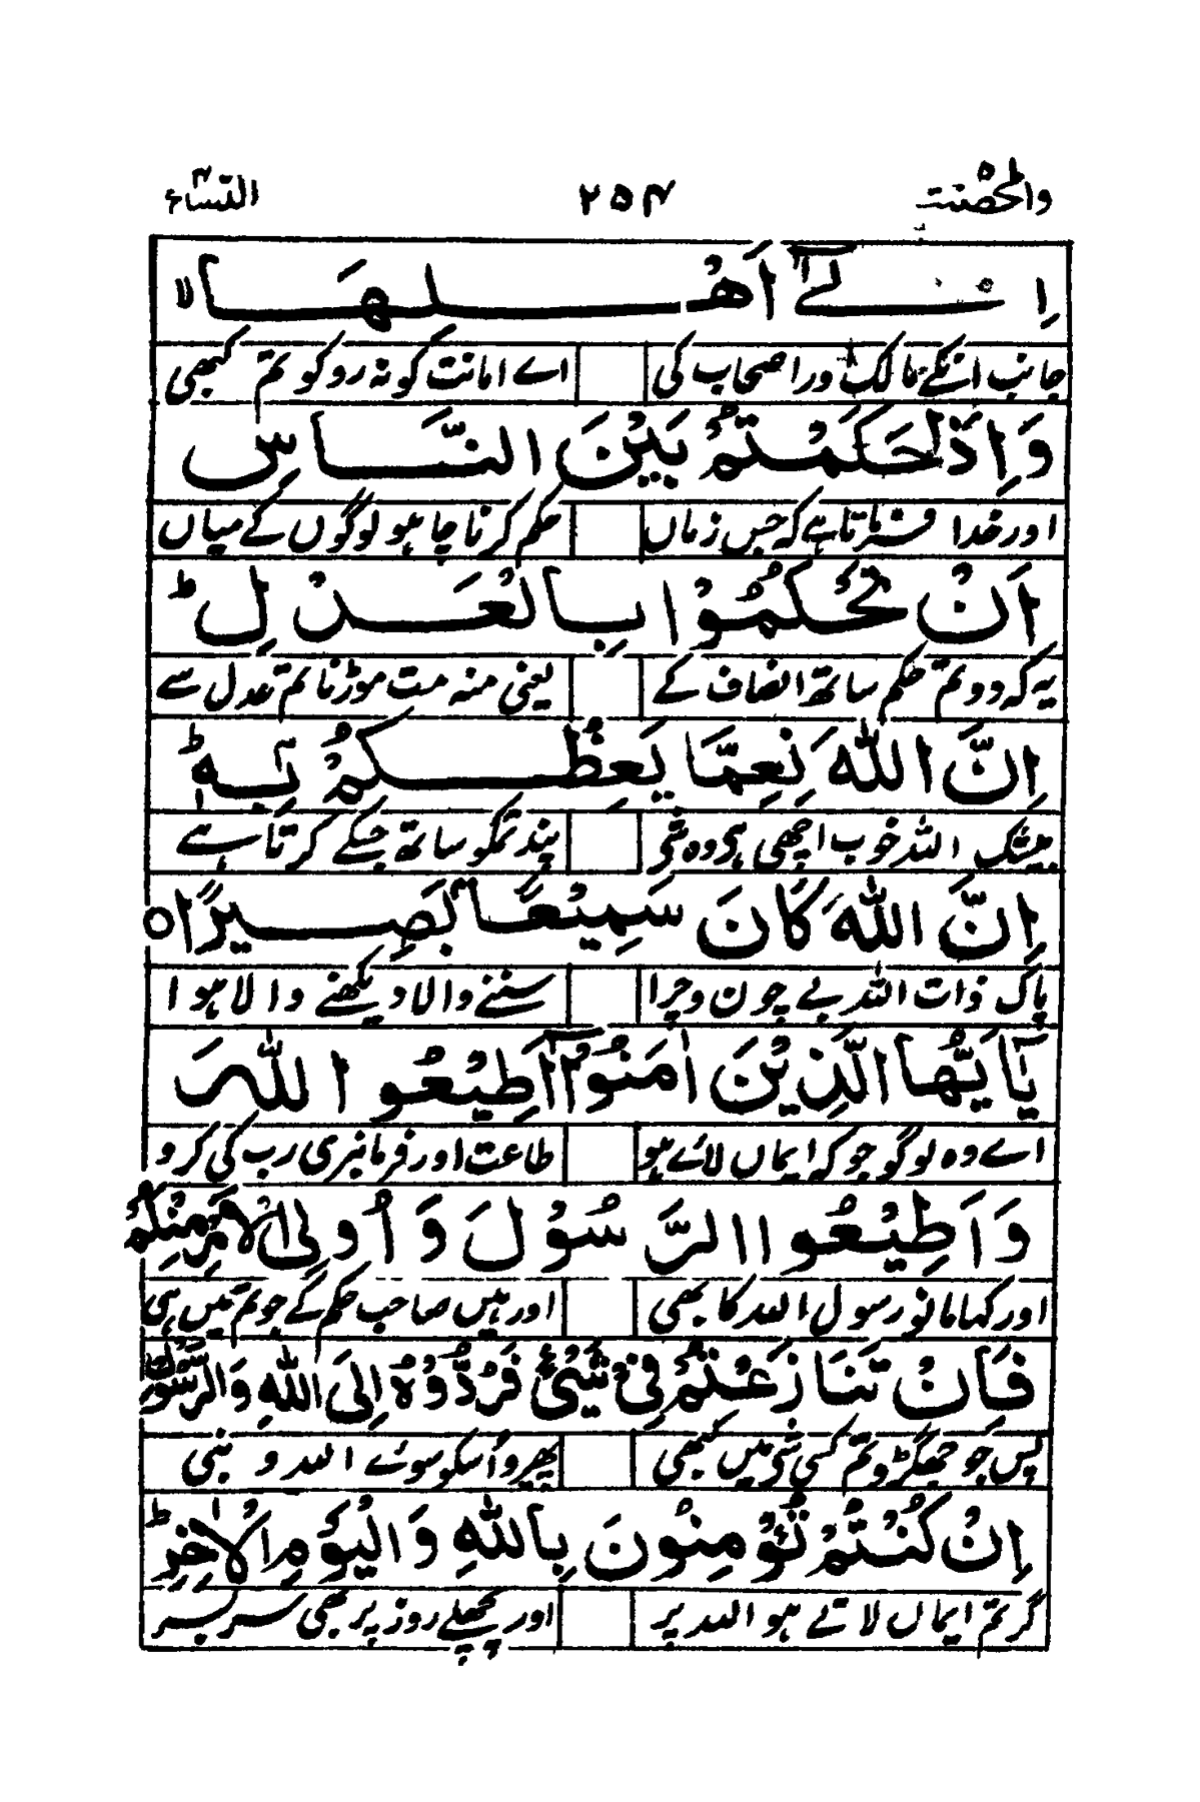 والمحصنت ۵ ۲۵۴ النساء ۴
اِلٰٓى اَهْلِهَا ۙ
جانب انکے مالک ور اصحاب کی اے امانت کو نہ روکو تم کبھی
وَاِذَا حَكَمْتُمْ بَيْنَ النَّاسِ
اور خدا فرماتا ہے کہ جس زماں حکم کرنا چاہو لوگوں کے میاں
اَنْ تَحْكُمُوْا بِالْعَدْلِ ؕ
یہ کہ دو تم حکم ساتھ انصاف کے یعنی منہ مت موڑنا تم عدل سے
اِنَّ اللّٰهَ نِعِمَّا يَعِظُكُمْ بِهٖ ؕ
بیشک اللہ خوب اچھی ہی وہ شی پند تمکو ساتھ جسکے کرتا ہے
اِنَّ اللّٰهَ كَانَ سَمِيْعًۢا بَصِيْرًا ○
پاک ذات اللہ بے چون وچرا سننے والا دیکھنے والا ہوا
يٰٓاَيُّهَا الَّذِيْنَ اٰمَنُوْٓا اَطِيْعُوا اللّٰهَ
اے وہ لوگو جو کہ ایماں لائے ہو طاعت اور فرمانبری رب کی کرو
وَاَطِيْعُوا الرَّسُوْلَ وَاُولِى الْاَمْرِ مِنْكُمْ
اور کہا مانو رسول اللہ کا بھی اور ہیں صاحب حکم کے جو تم میں ہی
فَاِنْ تَنَازَعْتُمْ فِيْ شَيْءٍ فَرُدُّوْهُ اِلَى اللّٰهِ وَالرَّسُوْلِ
پس جو جھگڑو تم کسی شی میں کبھی پھیرو اُسکو سوئے اللہ و نبی
اِنْ كُنْتُمْ تُؤْمِنُوْنَ بِاللّٰهِ وَالْيَوْمِ الْاٰخِرِ ؕ
گر تم ایماں لاتے ہو اللہ پر اور پچھلے روز پر بھی سربسر